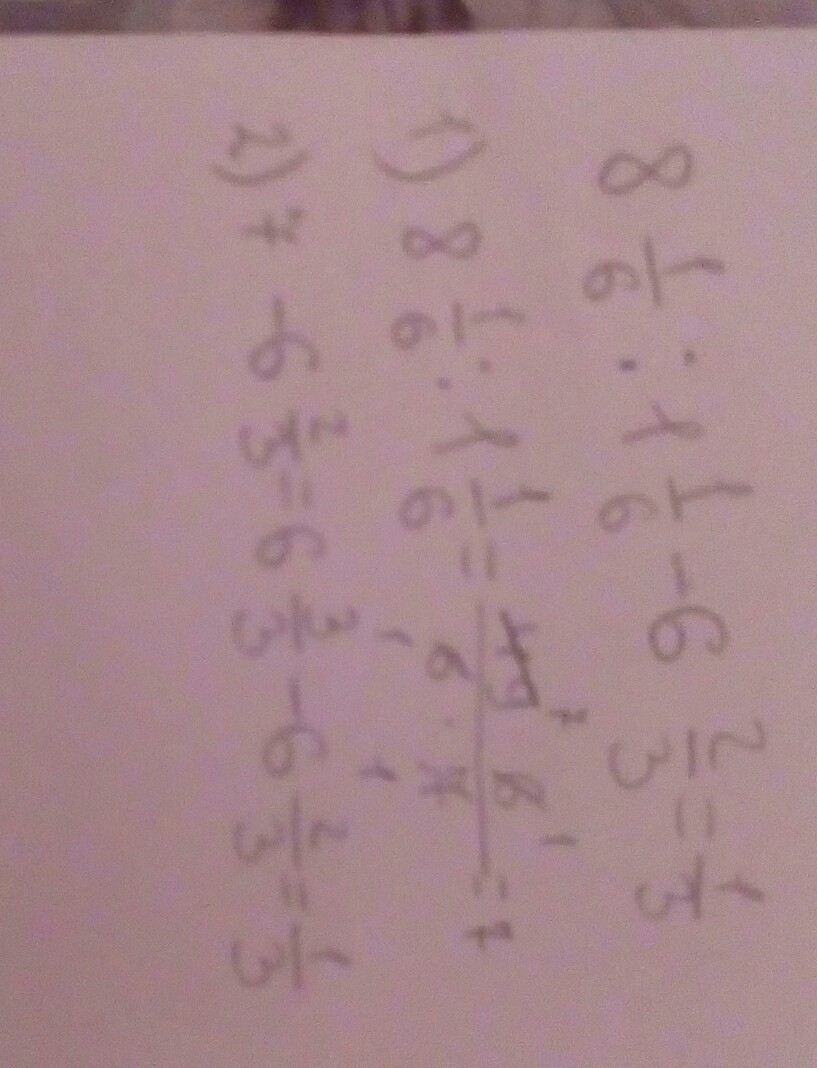 8 1/6 : 1 1/6 - 6 2/3 = 1/3
1) 8 1/6 : 1 1/6 = 49 7 6 1 / 6 1 · 7 1 = 7
2) 7 - 6 2/3 = 6 3/3 - 6 2/3 = 1/3